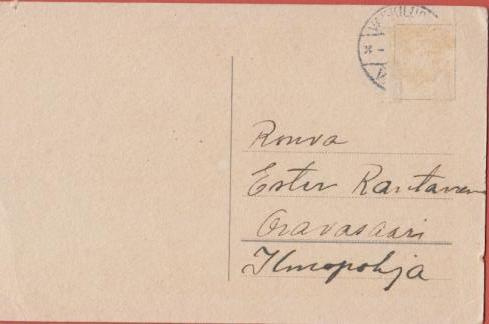 Rouva
Ester Rautanen
Oravasaari
Ilmopohja